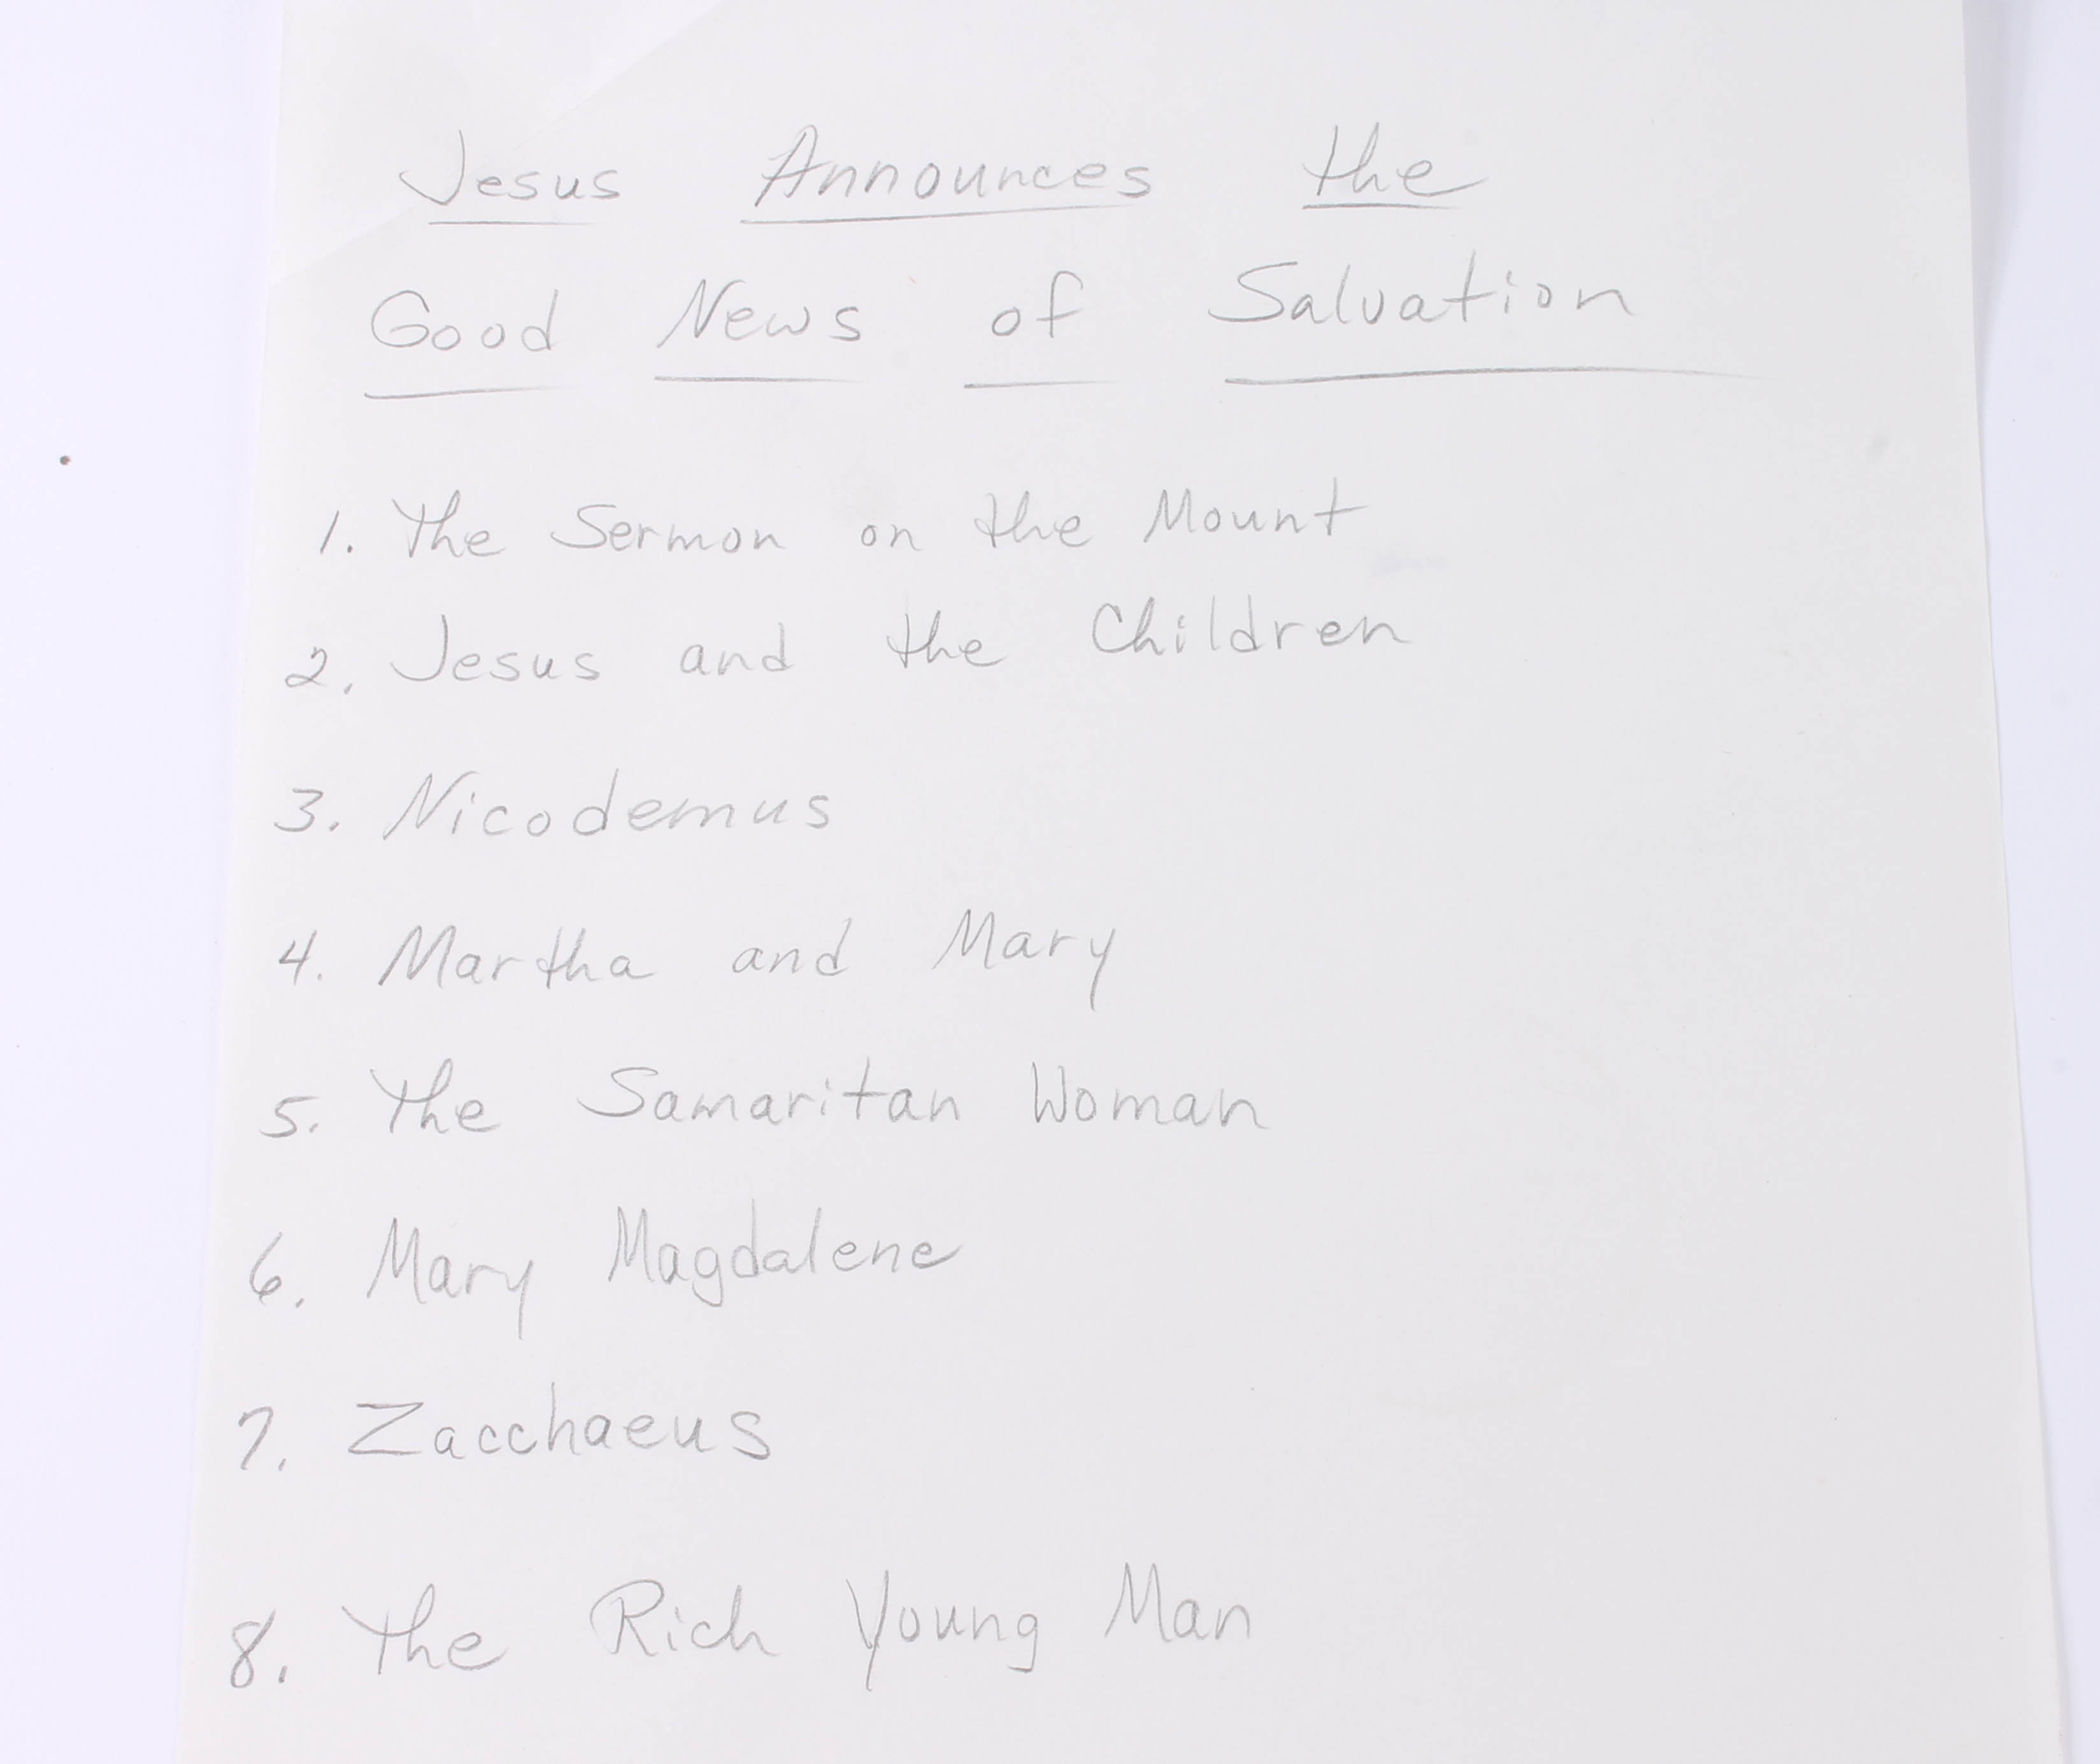 Jesus Announces the
Good News of Salvation
1. The Sermon on the Mount
2. Jesus and the Children
3. Nicodemus
4. Martha and Mary
5. The Samaritan Woman
6. Mary Magdalene
7. Zacchaeus
8. The Rich Young Man